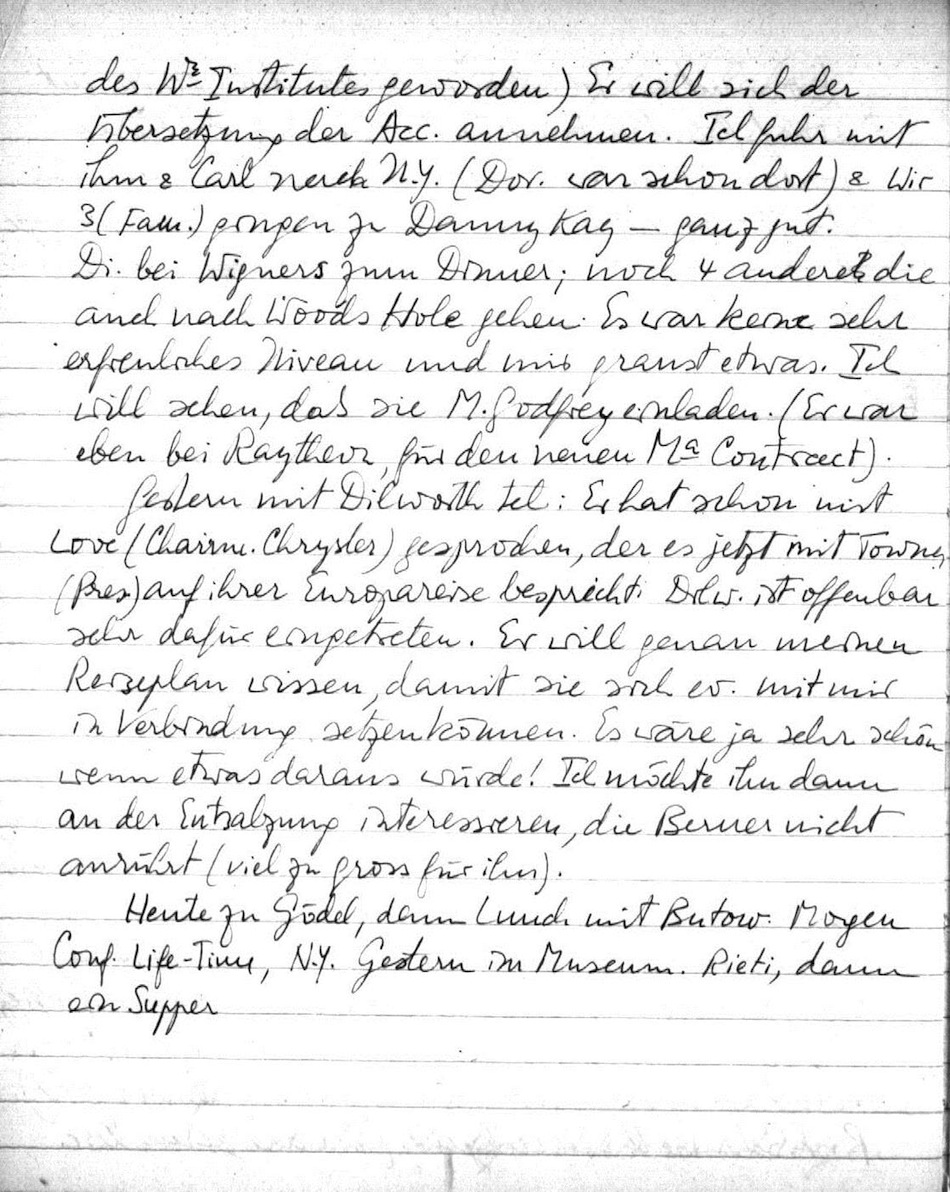 des Wr Institutes geworden) Er will sich der
Übersetzung der Acc. annehmen. Ich fuhr mit
ihm & Carl nach N.Y. (Dor. war schon dort) & Wir
3 (Fam.) gingen zu Danny Kay – ganz gut.
Di. bei Wigners zum Dinner; noch 4 andere, die
auch nach Woods Hole gehen. Es war keine sehr
erfreuliches Niveau und mir graust etwas. Ich
will sehen, das sie M. Godfrey einladen. (Er war
eben bei Raytheon, für den neuen Ma Contract).
Gestern mit Dilworth tel: Er hat schon mit
Love (Chairm. Chrysler) gesprochen, der es jetzt mit
(Pres) auf ihrer Europareise bespricht. Dilw. ist offenbar
sehr dafür eingetreten. Er will genau meinen
Reiseplan wissen, damit sie sich ev. mit mir
in Verbindung setzen können. Es wäre ja sehr schön
wenn etwas daraus würde! Ich möchte ihn dann
an der Entsalzung interessieren, die Berner nicht
anrührt (viel zu gross für ihn).
Heute zu Gödel, dann Lunch mit Butow. Morgen
Conf. Life-Time, N.Y. Gestern im Museum. Rieti, dann
ein Supper